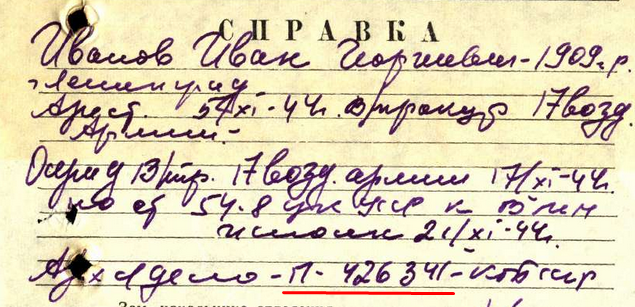 СПРАВКА
Иванов Иван Георгиевич - 1909 г.р.
Ленинград
Арест. 5/XI-44г. В/прокур 17 возд.
Армии.
Осужд В/тр. 17 возд. армии 17/XI-44г.
по ст 54-8 УК УССР к ВМН
21/XI-44г.
Арх дело - П-426341 -